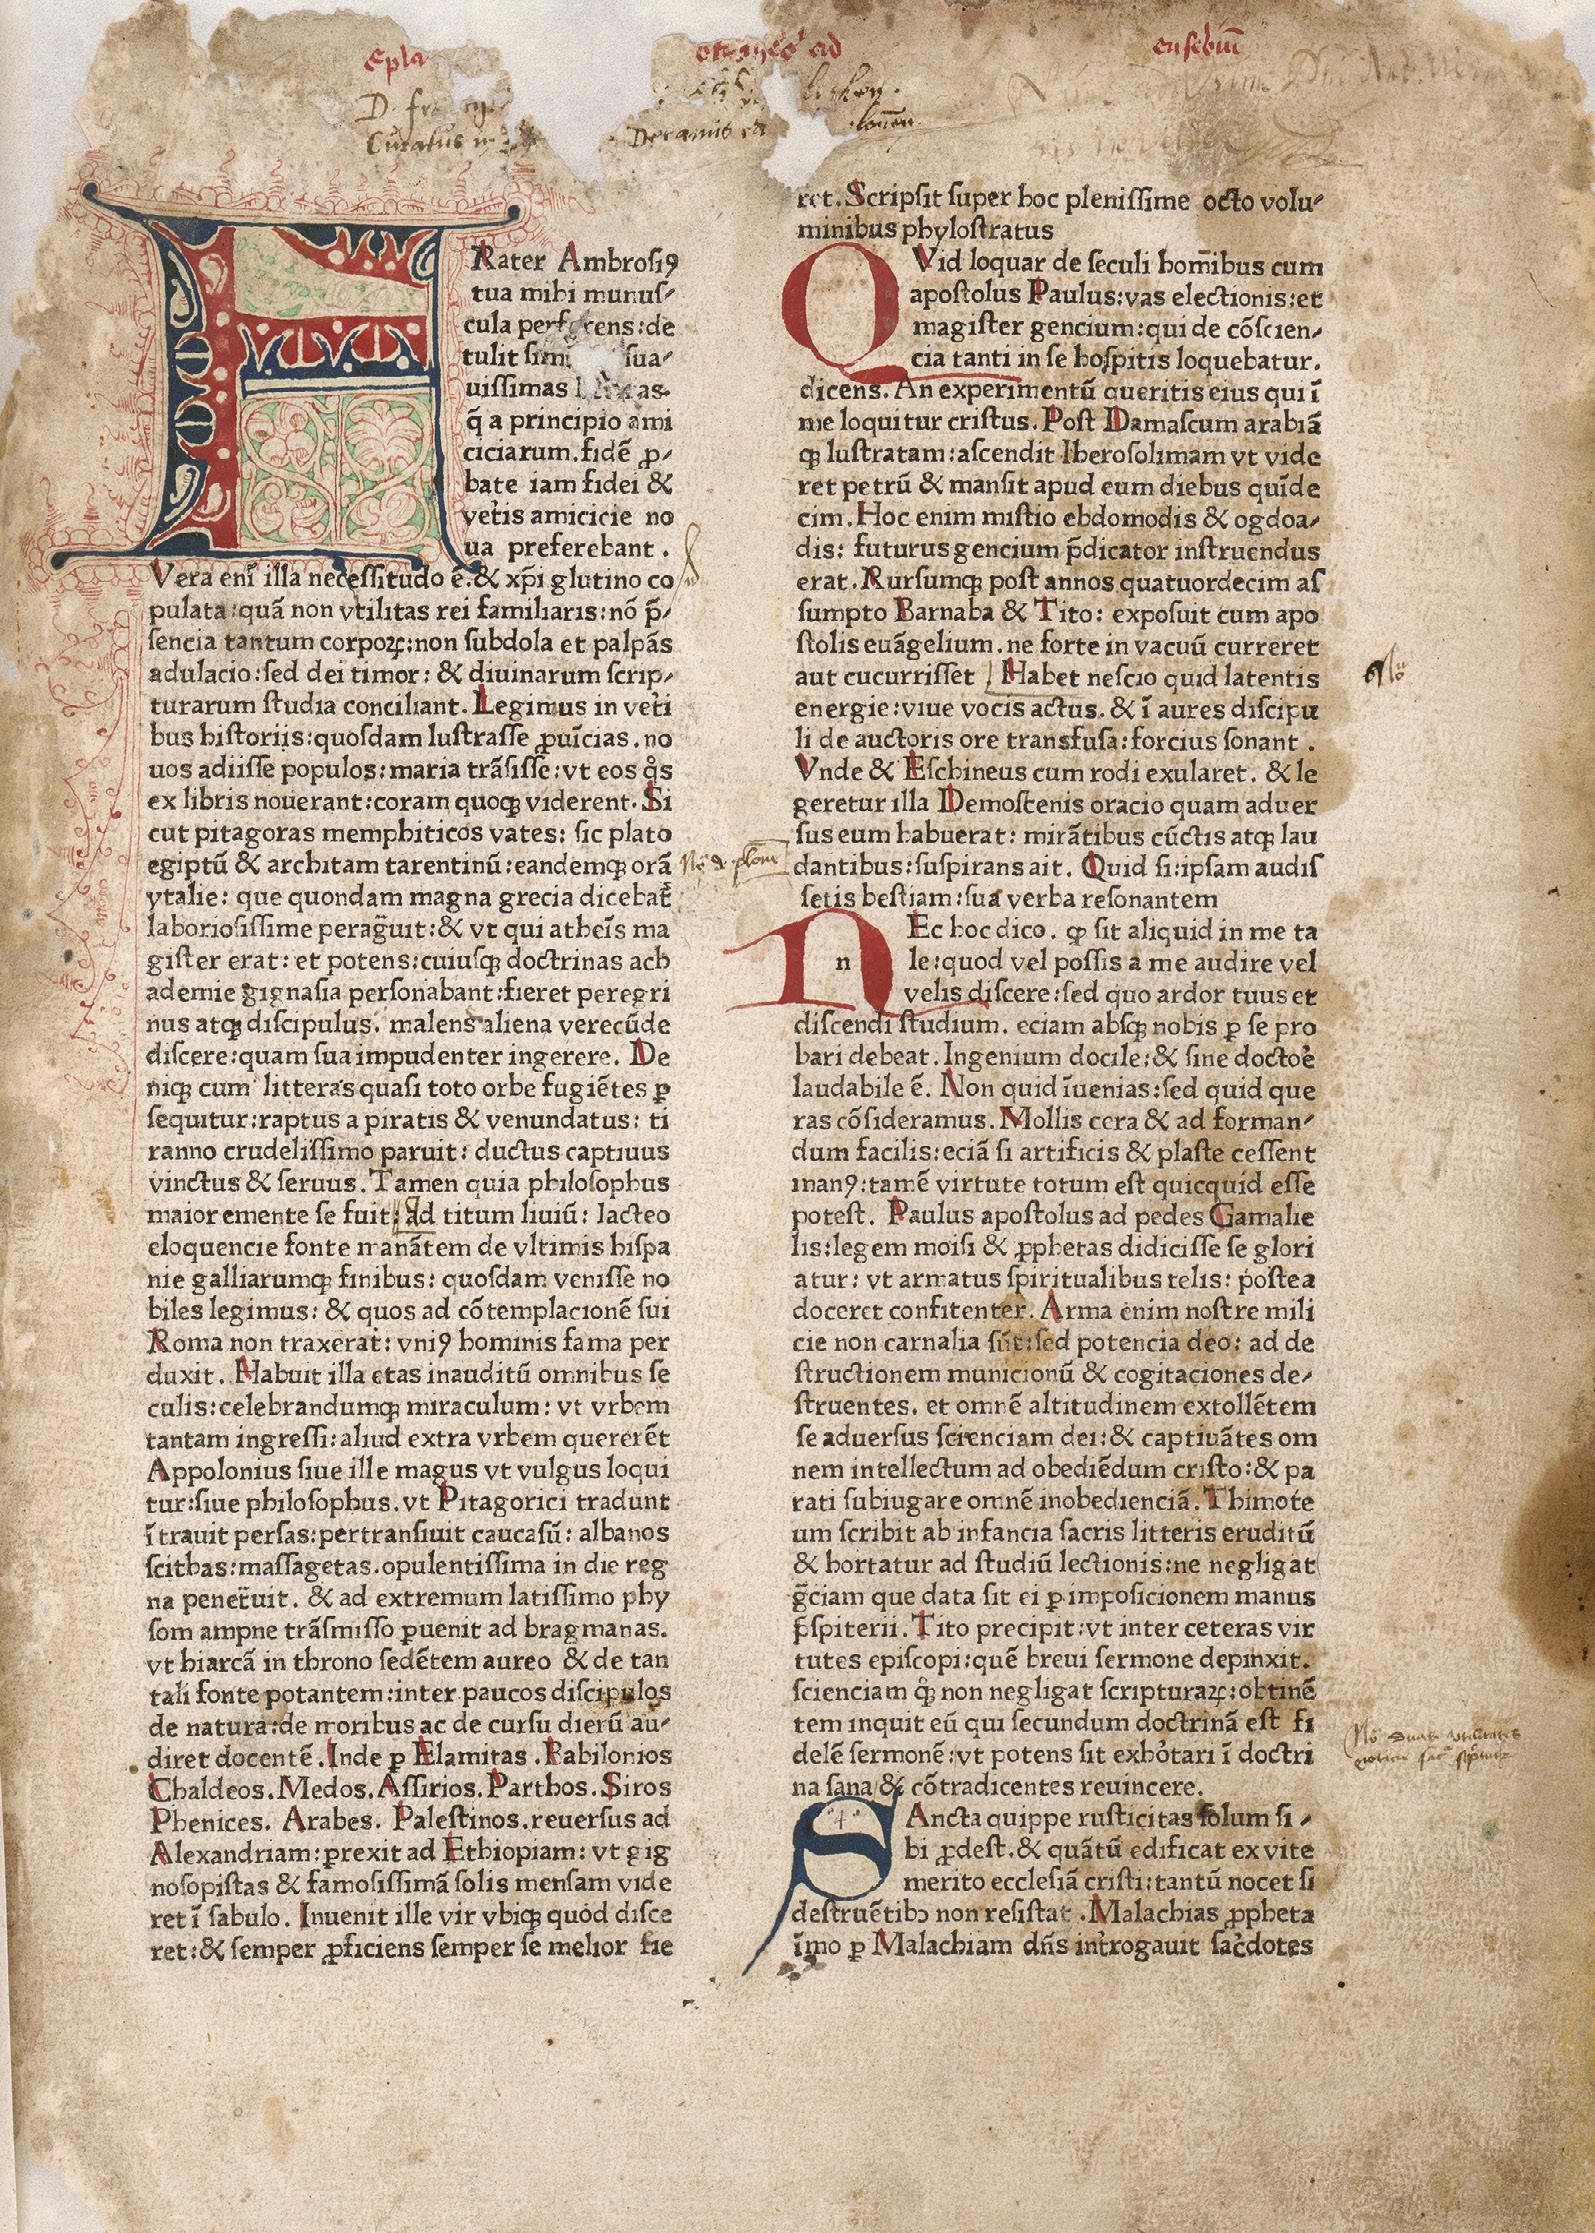 Epla
ad
eusebiũ
D.
Curatus
Decanus
Rater Ambrosiꝯ
tua mihi munuſ⸗
cula perferens:de
tulit sua⸗
uiſſimas as.
q̃ a principio ami
ciciarum.fidẽ ꝓ⸗
bate iam fidei &
vet̃is amicicie no
ua preferebant.
Vera enĩ illa neceſſitudo ẽ.& xp̃i glutino co
pulata:quã non vtilitas rei familiaris:nõ p̃⸗
ſencia tantum corpoꝝ:non ſubdola et palpãs
adulacio:ſed dei timor: & diuinarum ſcrip⸗
turarum ſtudia conciliant. Legimus in vet̃i
bus hiſtoriis:quoſdam luſtraſſe ꝓuĩcias.no
uos adiiſſe populos:maria trãſiſſe:vt eos q̊s
ex libris nouerant:coram quoqꝫ viderent. Si
cut pitagoras memphiticos vates: ſic plato
egiptũ & architam tarentinũ:eandemqꝫ orã
ytalie: que quondam magna grecia dicebat̃
laborioſiſſime perag̃uit:& vt qui atheĩs ma
giſter erat: et potens:cuiuſqꝫ doctrinas ach
ademie gignaſia perſonabant:fieret peregri
nus atqꝫ diſcipulus. malens aliena verecũde
diſcere:quam ſua impudenter ingerere. De
niqꝫ cum litteras quaſi toto orbe fugiẽtes ꝑ
ſequitur:raptus a piratis & venundatus: ti
ranno crudeliſſimo paruit: ductus captiuus
vinctus & ſeruus. Tamen quia philoſophus
maior emente ſe fuit: ad titum liuiũ: lacteo
eloquencie fonte manãtem de vltimis hiſpa
nie galliarumqꝫ finibus: quoſdam veniſſe no
biles legimus: & quos ad cõtemplacionẽ ſui
Roma non traxerat: vniꝯ hominis fama per
duxit. Habuit illa etas inauditũ omnibus ſe
culis:celebrandumqꝫ miraculum: vt vrbem
tantam ingreſſi:aliud extra vrbem quererẽt
Appolonius ſiue ille magus vt vulgus loqui
tur:ſiue philoſophus.vt Pitagorici tradunt
ĩtrauit perſas:pertranſiuit caucaſũ: albanos
ſcithas:maſſagetas.opulentiſſima in die reg
na penet̃uit. & ad extremum latiſſimo phy
ſom ampne trãſmiſſo ꝑuenit ad bragmanas.
vt hiarcã in throno ſedẽtem aureo & de tan
tali fonte potantem:inter paucos diſcipulos
de natura:de moribus ac de curſu dierũ au⸗
diret docentẽ. Inde ꝑ Elamitas. Babilonios
Chaldeos. Medos. Aſſirios. Parthos. Siros
Phenices. Arabes. Paleſtinos.reuerſus ad
Alexandriam:ꝑrexit ad Ethiopiam: vt gig
noſopiſtas & famoſiſſimã ſolis menſam vide
ret ĩ ſabulo. Inuenit ille vir vbiqꝫ quod diſce
ret:& ſemper ꝓficiens ſemper ſe melior fie
Nõ de platõe
ret. Scripſit ſuper hoc pleniſſime octo volu⸗
minibus phyloſtratus
QVid loquar de ſeculi hom̃ibus cum
apoſtolus Paulus:vas electionis:et
magiſter gencium:qui de cõſcien⸗
cia tanti in ſe hoſpitis loquebatur.
dicens. An experimentũ queritis eius qui ĩ
me loquitur criſtus. Poſt Damaſcum arabiã
qꝫ luſtratam:aſcendit Iheroſolimam vt vide
ret petrũ & manſit apud eum diebus quĩde
cim. Hoc enim miſtio ebdomodis & ogdoa⸗
dis: futurus gencium p̃dicator inſtruendus
erat. Rurſumqꝫ poſt annos quatuordecim aſ
ſumpto Barnaba & Tito: expoſuit cum apo
ſtolis euãgelium.ne forte in vacuũ curreret
aut cucurriſſet Habet neſcio quid latentis
energie:viue vocis actus. & ĩ aures diſcipu
li de auctoris ore transfuſa:forcius ſonant.
Vnde & Eſchineus cum rodi exularet. & le
geretur illa Demoſtenis oracio quam aduer
ſus eum habuerat: mirãtibus cũctis atqꝫ lau
dantibus:ſuſpirans ait. Quid ſi:ipſam audiſ
ſetis beſtiam:ſua verba reſonantem
n
NEc hoc dico. qꝫ ſit aliquid in me ta
le:quod vel poſſis a me audire vel
velis diſcere:ſed quo ardor tuus et
diſcendi ſtudium. eciam abſqꝫ nobis ꝑ ſe pro
bari debeat. Ingenium docile:& ſine docto̊e
laudabile ẽ. Non quid ĩuenias:ſed quid que
ras cõſideramus. Mollis cera & ad forman⸗
dum facilis:eciã ſi artificis & plaſte ceſſent
manꝯ:tamẽ virtute totum eſt quicquid eſſe
poteſt. Paulus apoſtolus ad pedes Gamalie
lis:legem moiſi & ꝓphetas didiciſſe ſe glori
atur: vt armatus ſpiritualibus telis: poſtea
doceret confitenter. Arma enim noſtre mili
cie non carnalia ſũt:ſed potencia deo: ad de
ſtructionem municionũ & cogitaciones de⸗
ſtruentes. et omnẽ altitudinem extollẽtem
ſe aduerſus ſcienciam dei:& captiuãtes om
nem intellectum ad obediẽdum criſto:& pa
rati ſubiugare omnẽ inobedienciã. Thimote
um ſcribit ab infancia ſacris litteris eruditũ
& hortatur ad ſtudiũ lectionis:ne negligat
g̃ciam que data ſit ei ꝑ impoſicionem manus
p̃ſpiterii. Tito precipit:vt inter ceteras vir
tutes epiſcopi:quẽ breui ſermone depinxit.
ſcienciam q̊ꝫ non negligat ſcripturaꝝ:obtinẽ
tem inquit eũ qui ſecundum doctrinã eſt fi
delẽ ſermonẽ:vt potens ſit exho̊tari ĩ doctri
na ſana & cõtradicentes reuincere.
4
SAncta quippe ruſticitas ſolum ſi⸗
bi ꝓdeſt.& quãtũ edificat ex vite
merito eccleſiã criſti:tantũ nocet ſi
deſtruẽtibꝯ non reſiſtat. Malachias ꝓpheta
ĩmo ꝑ Malachiam dñs int̃rogauit ſac̃dotes
Nõ
Nõ duas vtilitates